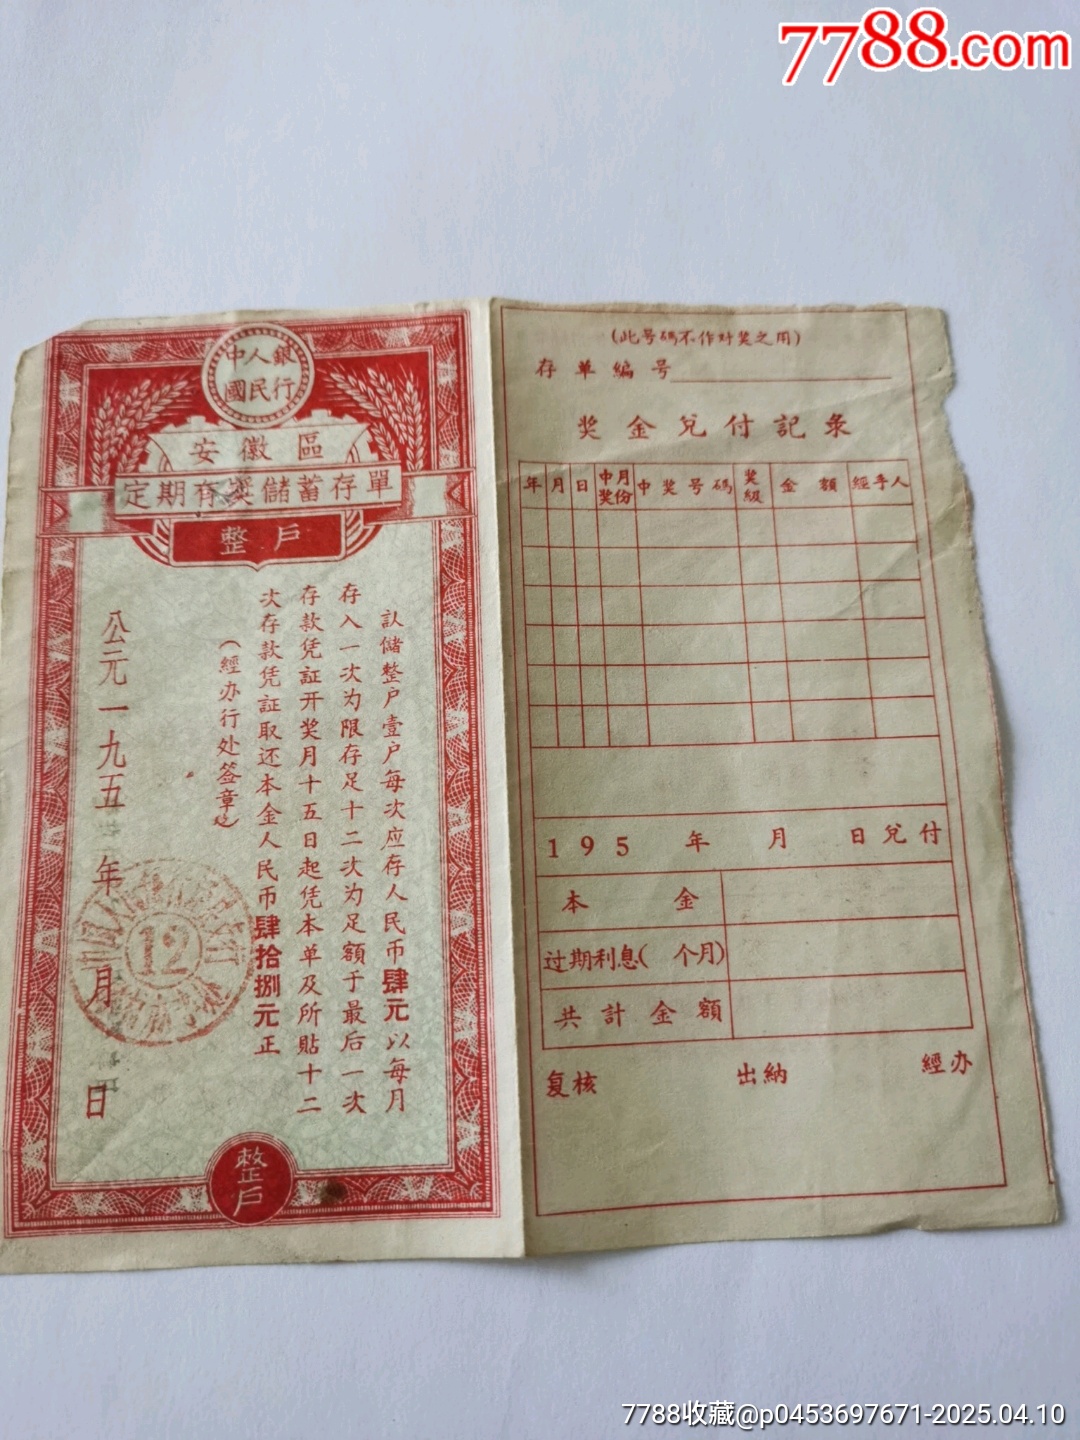 7788.com
中人銀
國民行
安徽區
定期有奖儲蓄存單
整戶
認儲整户壹户每次应存人民币肆元以每月
存入一次为限存足十二次为足額于最后一次
存款凭証开奖月十五日起凭本单及所貼十二
次存款凭証取还本金人民币肆拾捌元正
(經办行处签章)
公元一九五 年 月 日
12
整戶
(此号碼不作对奖之用)
存单編号
奖金兌付記录
年 月 日 中奖月份 中奖号碼 奖級 金額 經手人
195 年 月 日兌付
本金
过期利息( 个月)
共計金額
复核 出納 經办
7788收藏@p0453697671-2025.04.10